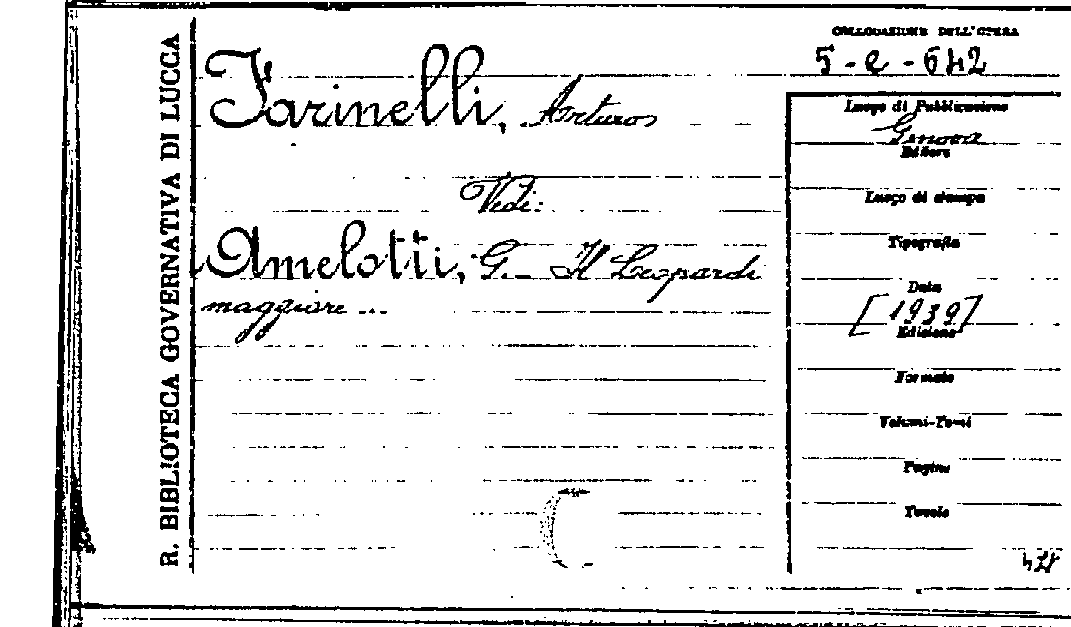 R. BIBLIOTECA GOVERNATIVA DI LUCCA
COLLOCAZIONE DELL'OPERA
5-e-642
Farinelli, Arturo
Vedi:
Amelotti, G. - Il Leopardi
maggiore ...
Luogo di Pubblicazione
Genova
Editore
Luogo di stampa
Tipografia
Data
[1939]
Edizione
Formato
Volumi-Tomi
Pagine
Tavole